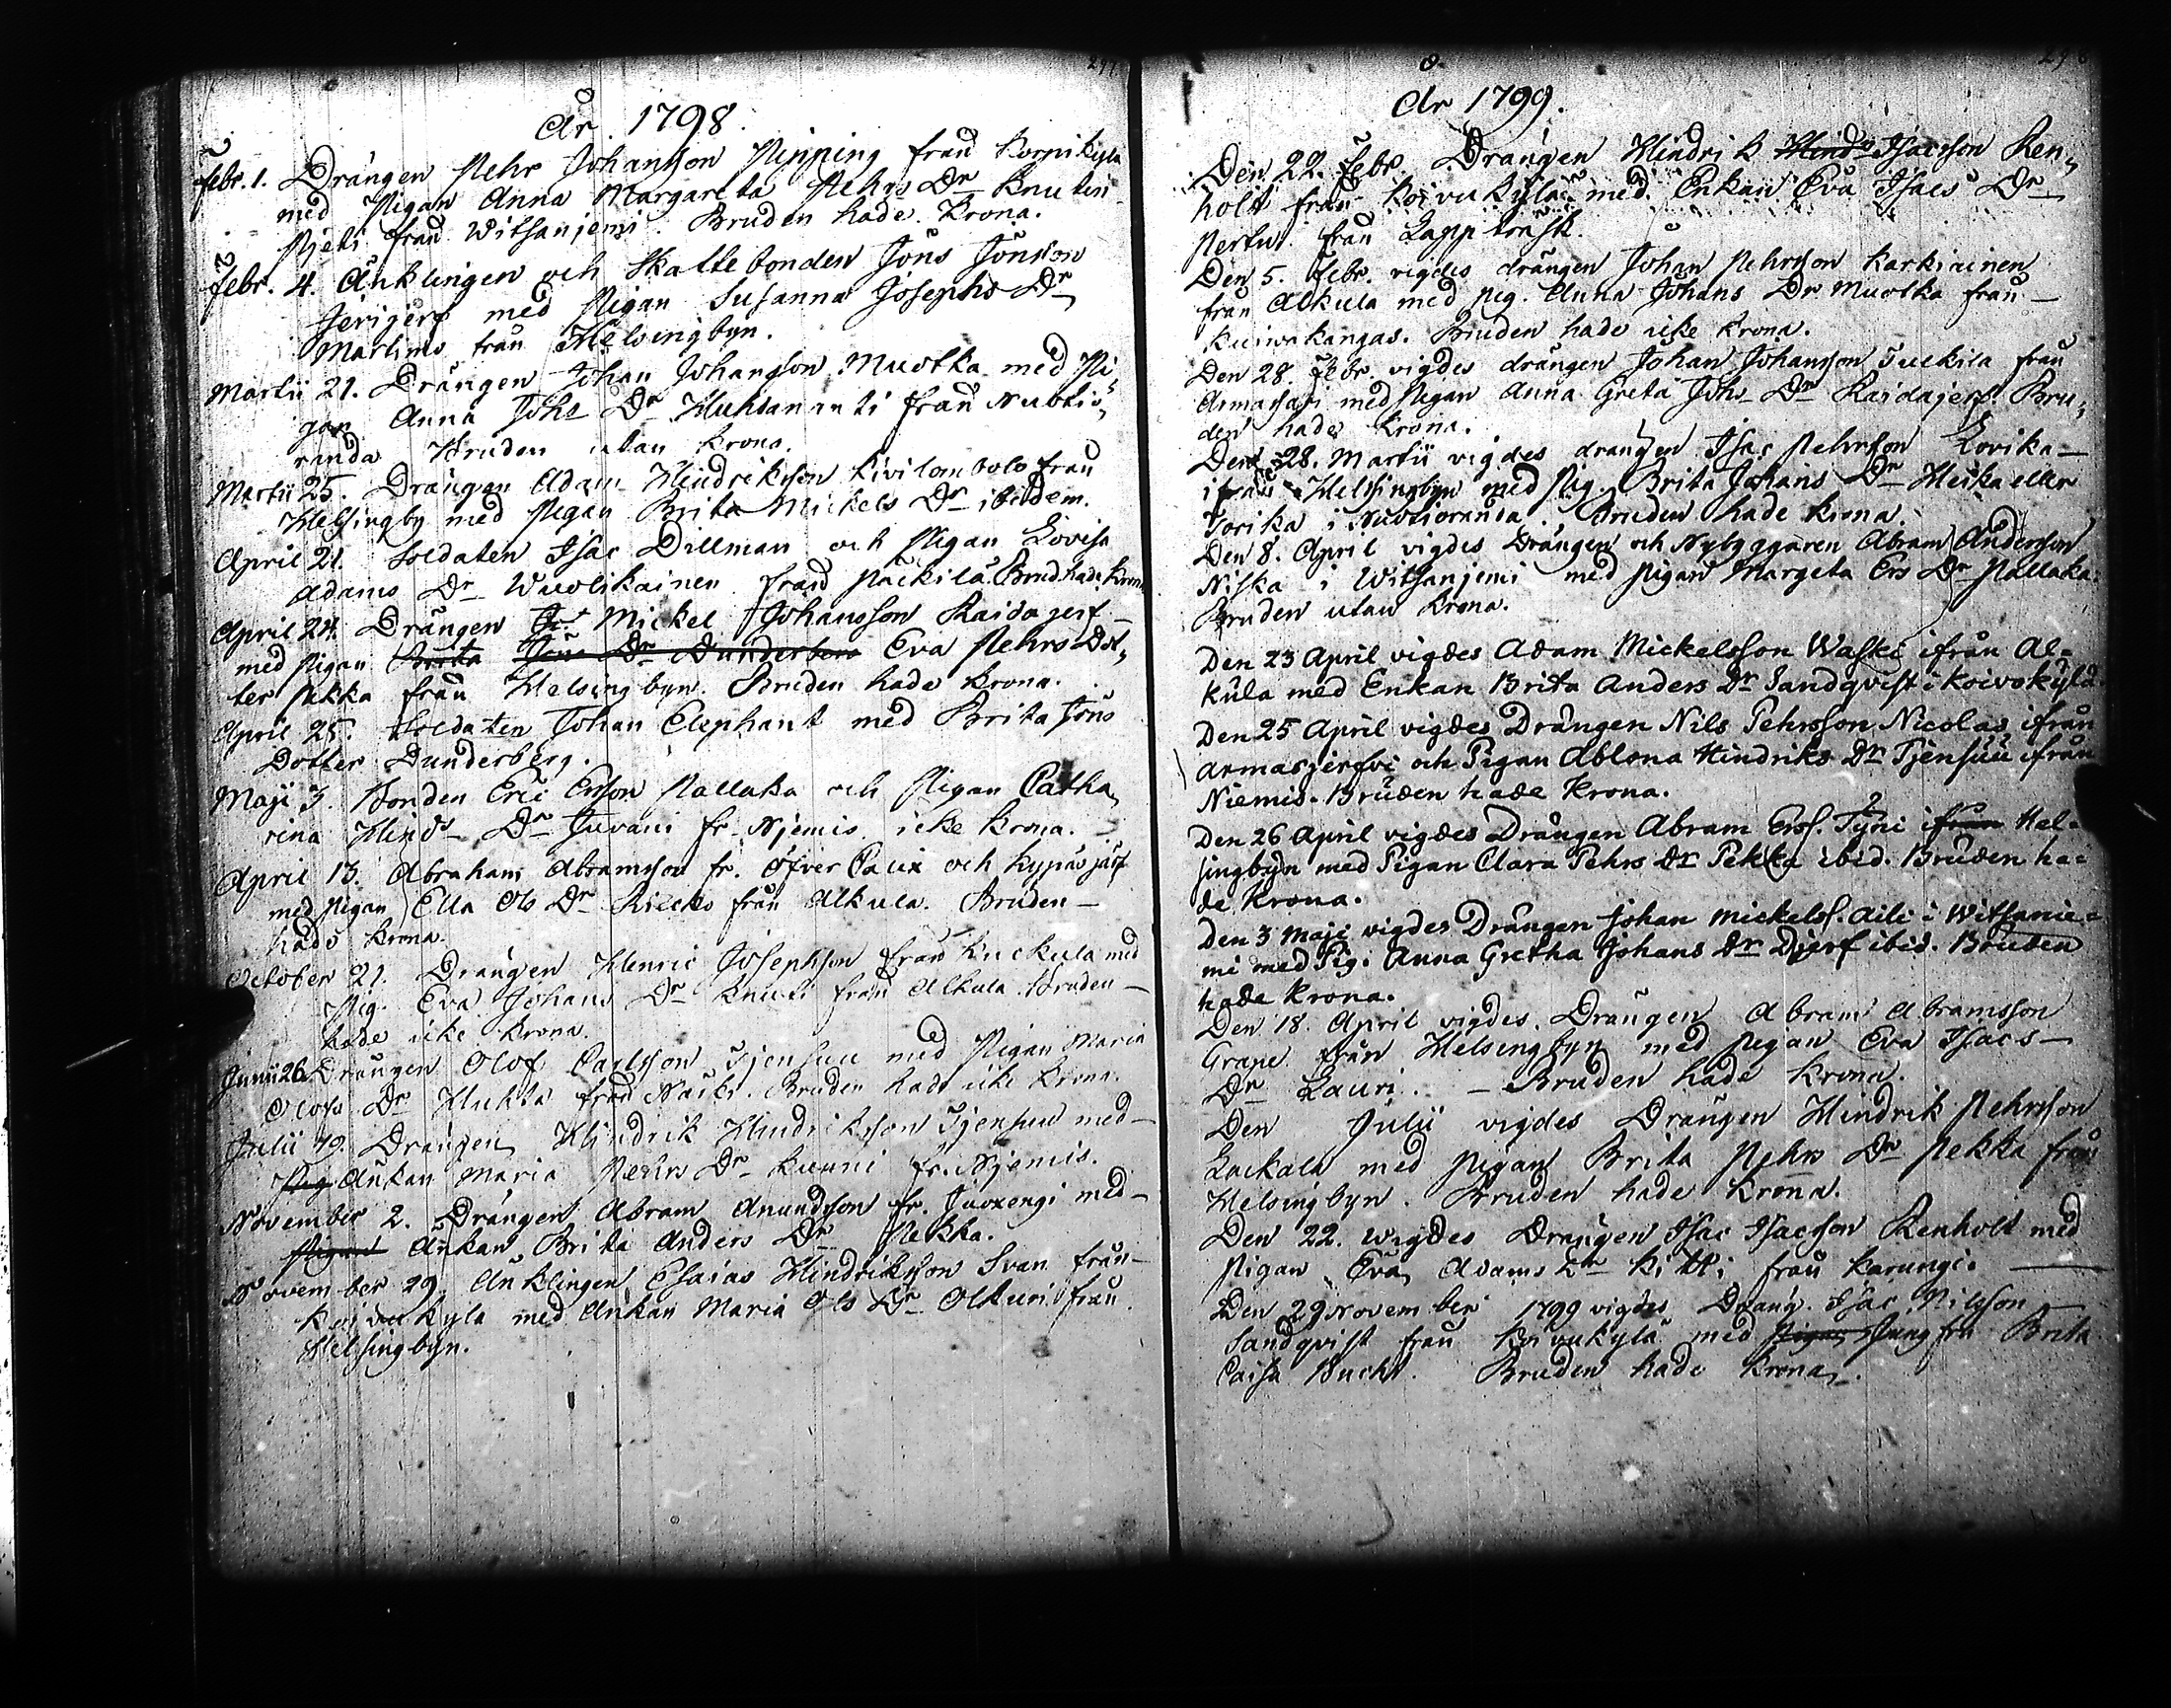 297
År. 1798.
Febr. 1. Drängen Pehr Johansson Pipping från Korpikylä
med Pigan Anna Margareta Pehrs Dr Knuten
Pjeti från Witsanjemi. Bruden hade Krona.
Febr. 4. Änklingen och Skattebonden Jöns Jönsson
Jerijerf med Pigan Susanna Josephs Dr
Martimo från Helsingbyn.
Martii 21. Drängen Johan Johansson Muotka med Pi-
gan Anna Johs Dr Huhtananti från Nuotio-
randa Bruden utan Krona.
Martii 25. Drängen Adam Hindriksson Kivilombolo från
Helsingby med Pigan Brita Mickels Dr ibidem.
April 21. Soldaten Isac Dillman och Pigan Lovisa
Adams Dr Wuolikainen från Päckilä. Brud. hade Krona
April 24. Drängen Mickel Johansson Raidajerf
med Pigan Brita Jöns Dr Dunderberg Eva Pehrs Dot-
ter Pekka från Helsingbyn. Bruden hade Krona.
April 25. Soldaten Johan Elephant med Brita Jöns
Dotter Dunderberg.
Maji 3. Bonden Eric Ersson Pallaka och Pigan Catha-
rina Hinds Dr Juvani fr. Njemis icke Krona.
April 13. Abraham Abramsson fr. Öfver Calix och Hypäsjärf
med Pigan Ella Ols Dr Riecko från Alkula. Bruden
hade Krona.
October 21. Drängen Henric Josephsson från Kuckula med
Pig. Eva Johans Dr Knuti från Alkula Bruden
hade icke Krona.
Junii 26. Drängen Olof Carlsson Tjensuu med Pigan Maria
Olofs Dr Huhta från Näcki. Bruden hade icke Krona.
Julii 19. Drängen Hindrik Hindriksson Tjensuu med
Pig Änkan Maria Pehrs Dr Kunni fr. Njemis.
November 2. Drängen Abram Anundsson fr. Juoxengi med
Pigan Änkan Brita Anders Dr Pekka.
November 29. Änklingen Esaias Hindriksson Svan från
Koivukylä med Änkan Maria Ols Dr Olkuri från
Helsingbyn.
År 1799.
Den 22. Febr. Drängen Hindrik Hinds Isacsson Ren-
holt från Koivukylä med Enkan Eva Isacs Dr
Perttu från Lappträsk.
Den 5. Febr. vigdes drängen Johan Pehrsson Karkiainen
från Alkula med Pig. Anna Johans Dr Muotka från
Kuivakangas. Bruden hade icke Krona.
Den 28. Febr. vigdes drängen Johan Johansson Tuckila från
Armasjari med Pigan Anna Greta Johs Dr Raidajerf Bru-
den hade Krona.
Den 28. Martii vigdes drängen Isac Pehrsson Lovika
ifrån Helsingbyn med Pig. Brita Johans Dr Heika eller
Torika i Nuotioranda. Bruden hade Krona.
Den 8. April vigdes Drängen och Nybyggaren Abram Andersson
Niska i Witsanjemi med Pigan Margeta Ers Dr Pallaka
Bruden utan Krona.
Den 23 April vigdes Adam Mickelsson Waski ifrån Al-
kula med Enkan Brita Anders Dr Sandqvist i Koivokylä.
Den 25 April vigdes Drängen Nils Pehrsson Nicolas ifrån
Armasjerfvi och Pigan Ablona Hindriks Dr Tjensuu ifrån
Niemis. Bruden hade Krona.
Den 26 April vigdes Drängen Abram Erss. Tyni ifrån Hel-
singbyn med Pigan Clara Pehrs Dr Pekka ibid. Bruden ha-
de Krona.
Den 3 Maji vigdes Drängen Johan Mickelss. Aili i Witsanie-
mi med Pig. Anna Gretha Johans Dr Djerf ibid. Bruden
hade Krona.
Den 18. April vigdes Drängen Abram Abramsson
Grape från Helsingbyn med Pigan Eva Isacs
Dr Lauri. Bruden hade Krona.
Den Julii vigdes Drängen Hindrik Pehrsson
Lackala med Pigan Brita Pehrs Dr Pekka från
Helsingbyn. Bruden hade Krona.
Den 22. wigdes Drängen Isac Isacsson Renholt med
Pigan Eva Adams Dr Kitti från Karungi.
Den 29 November 1799 vigdes Dräng. Isac Nilsson
Sandqvist från Koivukylä med Pigan Jungfru Brita
Caisa Bucht. Bruden hade Krona.